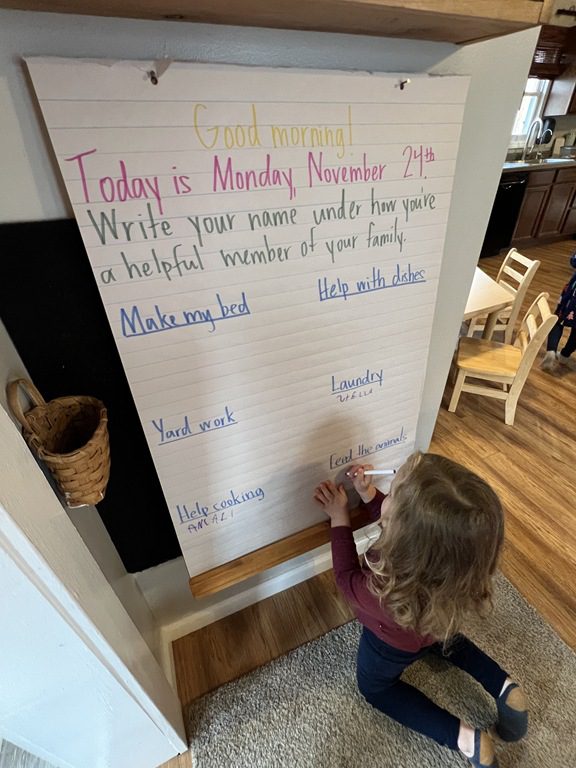 Good morning!
Today is Monday, November 24th.
Write your name under how you're
a helpful member of your family.
Make my bed
Help with dishes
Yard work
Laundry
Help cooking
Feed the animals